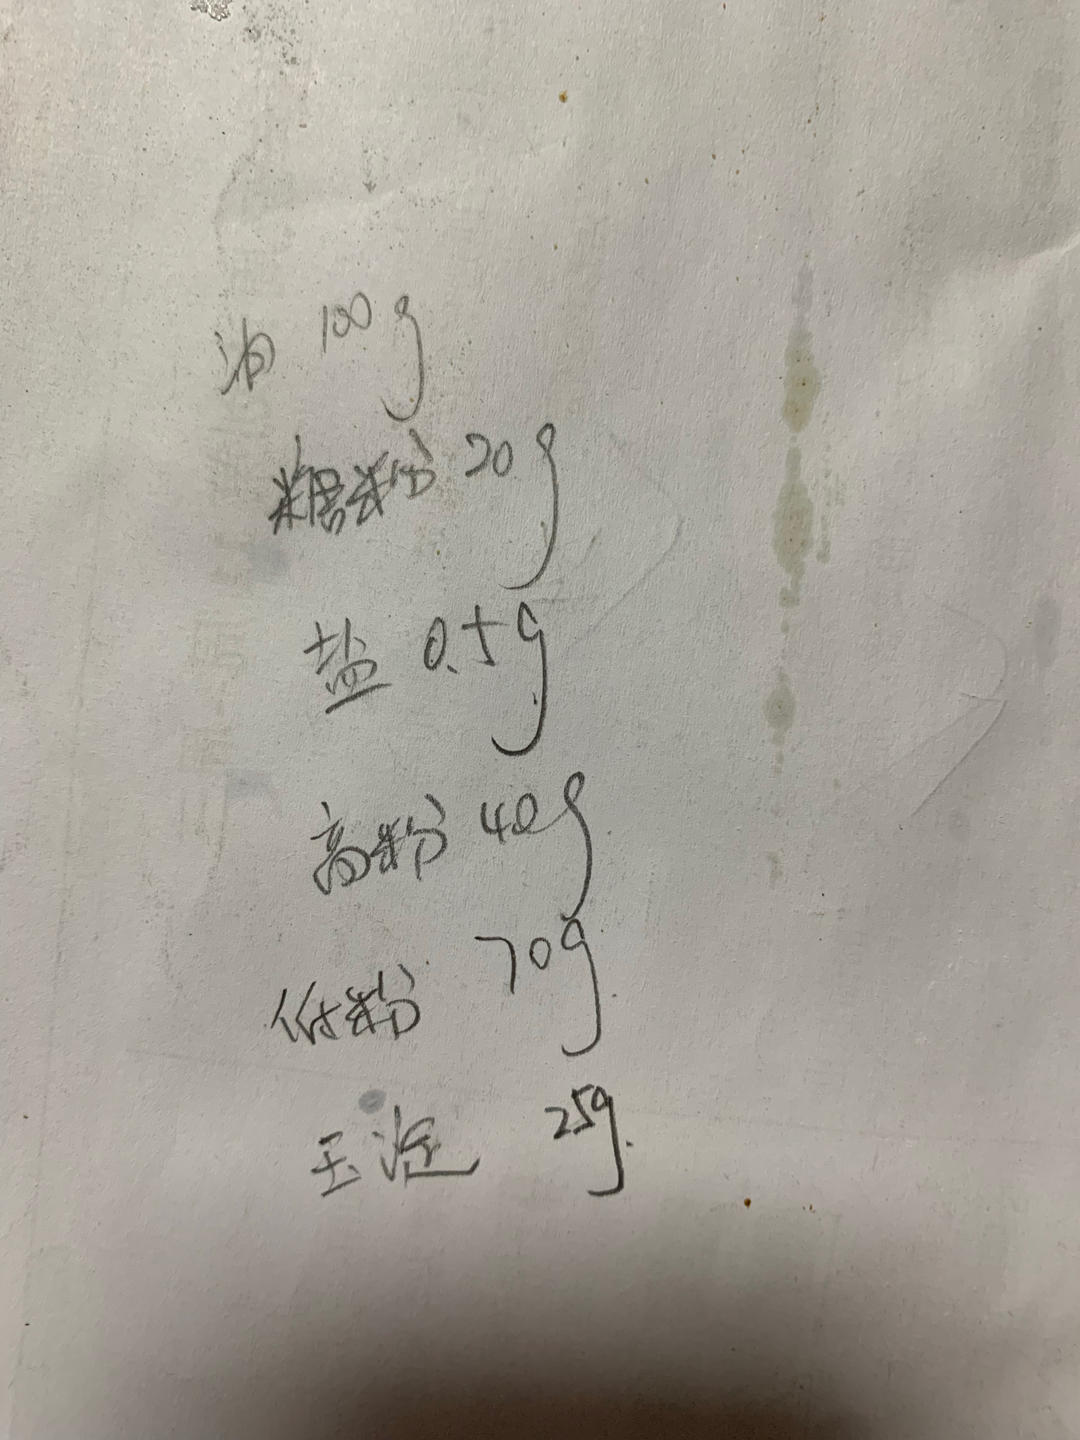 油 100g
糖粉 20g
盐 0.5g
高粉 40g
低粉 70g
玉淀 25g.